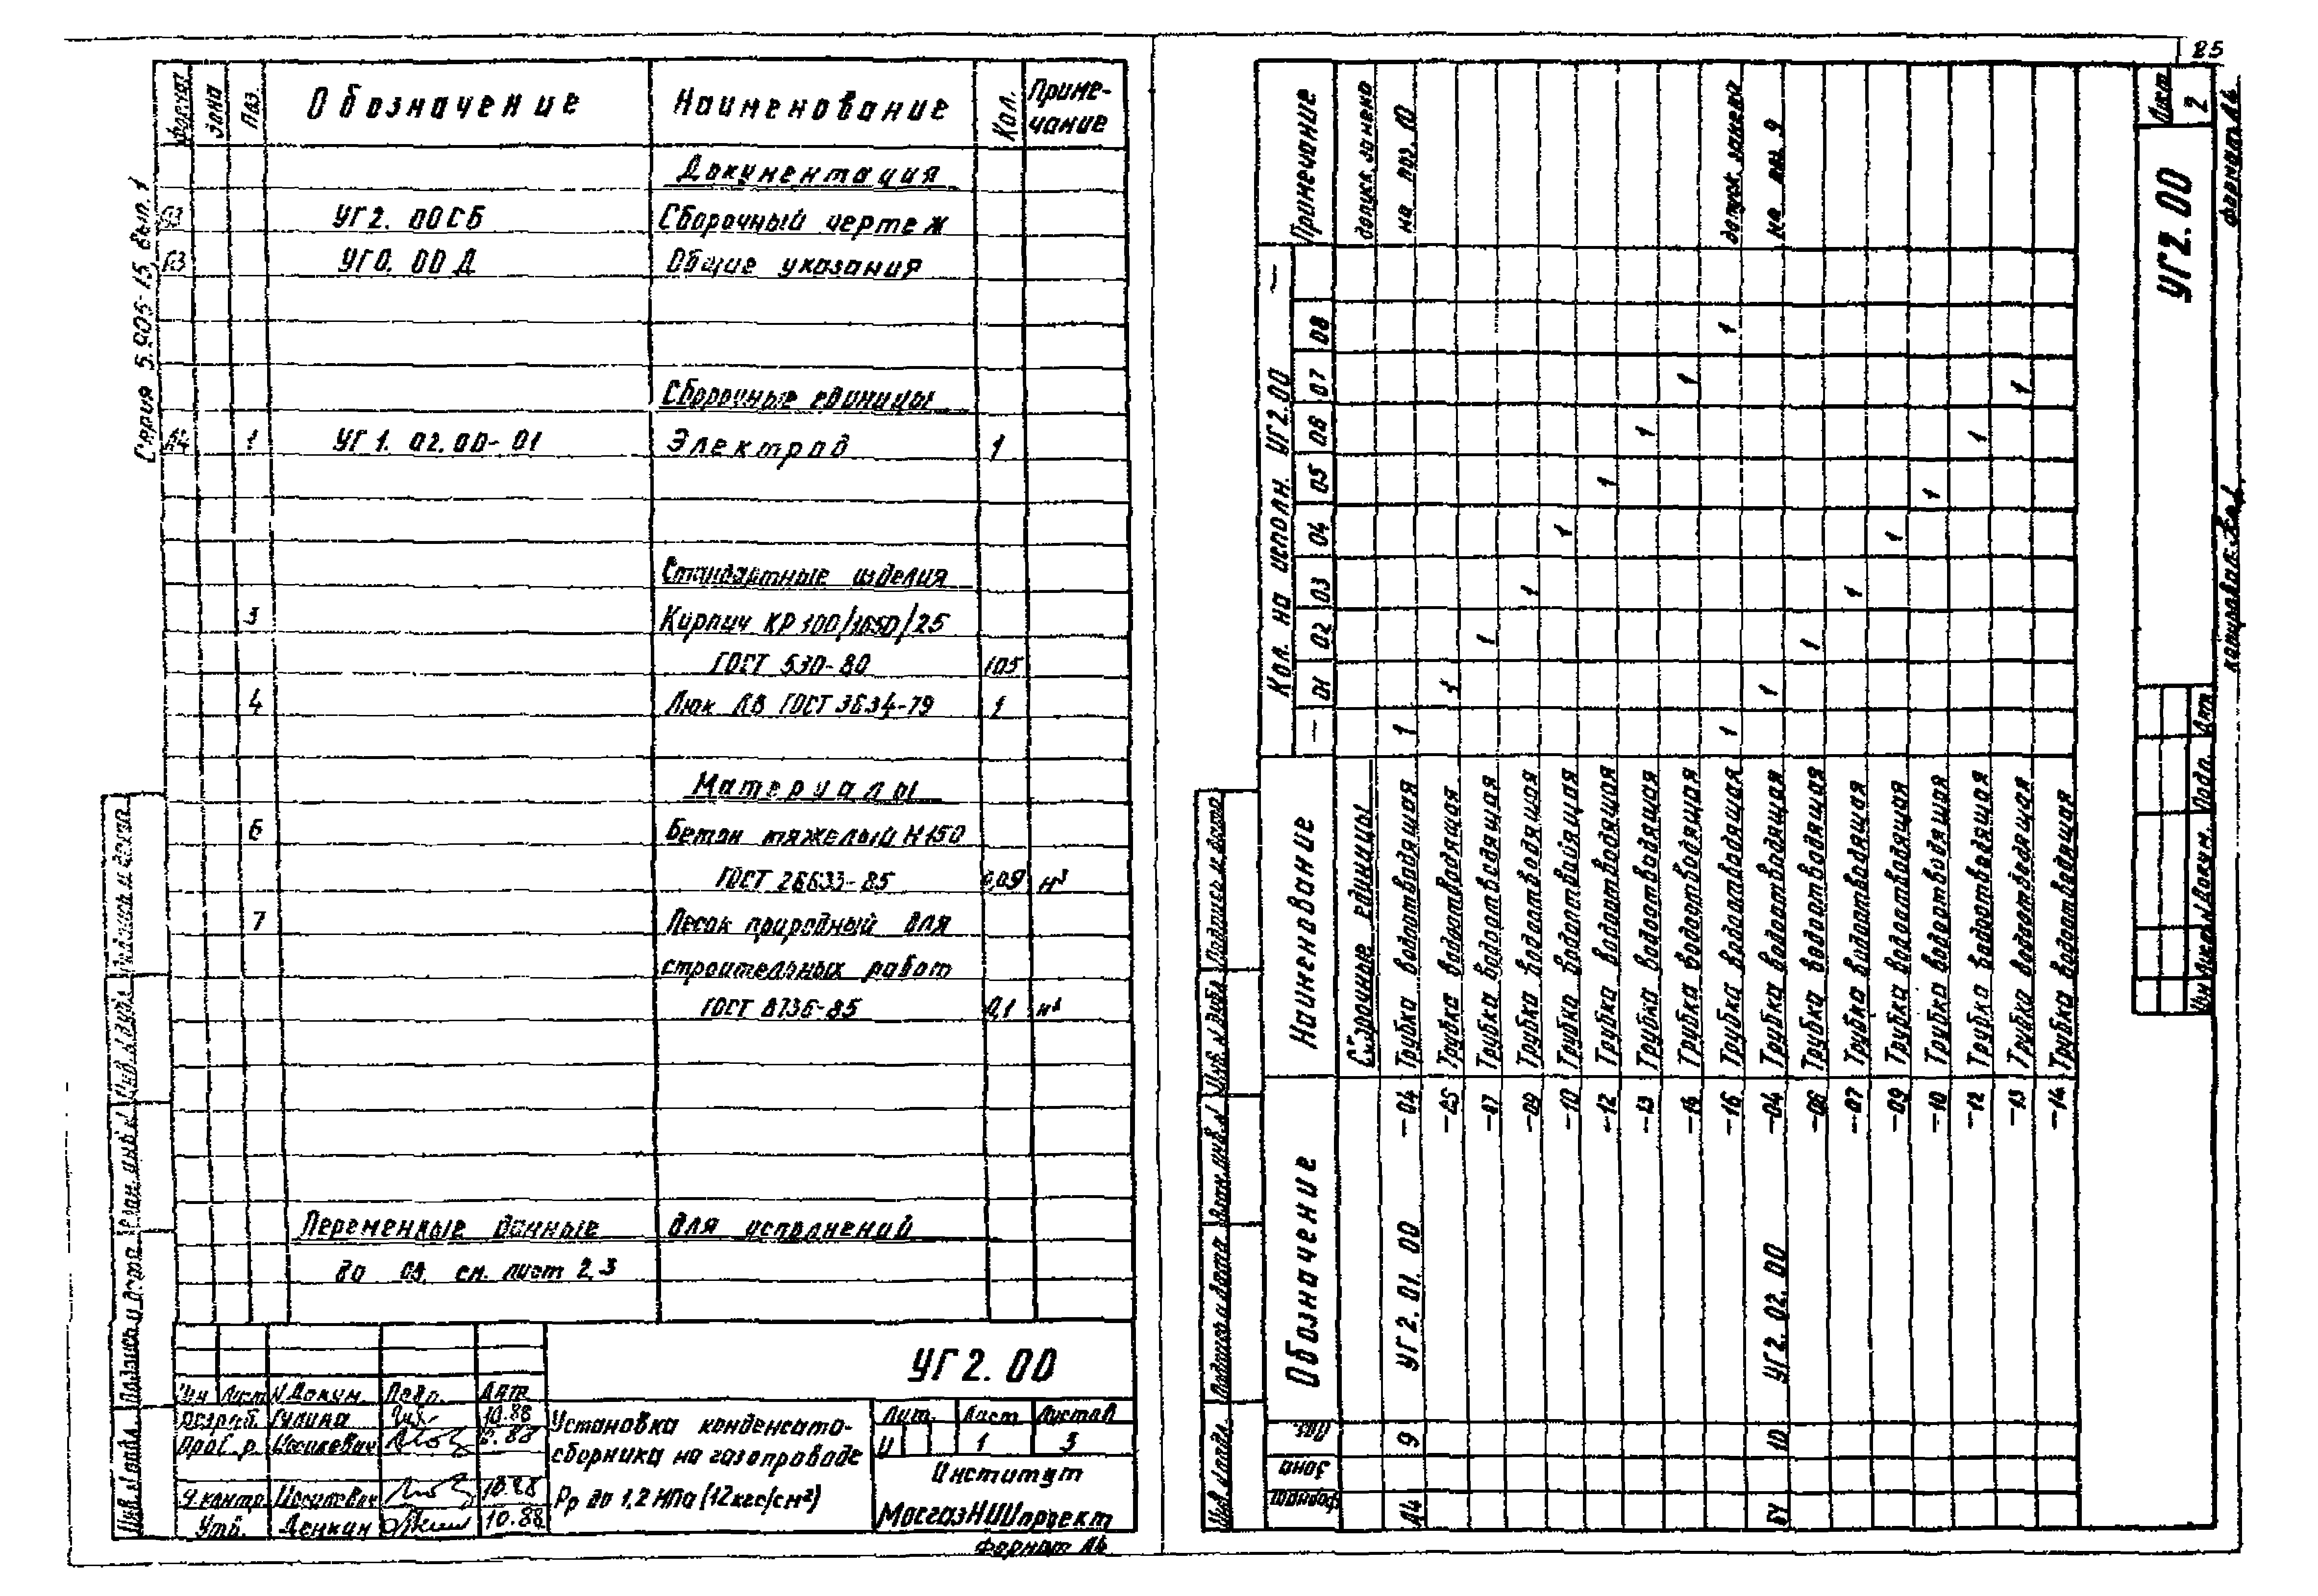 85
Серия 5.905-15 вып. 1
Формат Зона Поз. Обозначение Наименование Кол. Приме-
чание
Документация
А3 УГ2. 00СБ Сборочный чертеж
А3 УГ0. 00 Д Общие указания
Сборочные единицы
А4 1 УГ1. 02. 00-01 Электрод 1
Стандартные изделия
3 Кирпич КР 100/1650/25
ГОСТ 530-80 105
4 Люк ЛВ ГОСТ 3634-79 1
Материалы
6 Бетон тяжелый М150
ГОСТ 26633-85 0,09 м³
7 Песок природный для
строительных работ
ГОСТ 8736-85 0,1 м³
Переменные данные для исполнений
до 08 см. лист 2,3
Инв. № подл. Подпись и дата Взам. инв. № Инв. № дубл. Подпись и дата
УГ2. 00
Изм Лист № Докум. Подп. Дата
Разраб. Гулина 10.88
Пров. р. Иосилевич 10.88
Н.контр. Иосилевич 10.88
Утв. 10.88
Установка конденсато-
сборника на газопроводе
Рр до 1,2 МПа (12кгс/см²)
Лит. Лист Листов
И 1 3
Институт
МосгазНИИпроект
Формат А4
Формат Зона Поз. Обозначение Наименование Кол. на исполн. УГ2.00 — Примечание
— 01 02 03 04 05 06 07 08
Сборочные единицы допуск. замена
А4 9 УГ2. 01. 00 -04 Трубка водоотводящая 1 на поз. 10
-05 Трубка водоотводящая 1
-07 Трубка водоотводящая 1
-09 Трубка водоотводящая 1
-10 Трубка водоотводящая 1
-12 Трубка водоотводящая 1
-13 Трубка водоотводящая 1
-14 Трубка водоотводящая 1
-16 Трубка водоотводящая 1 1 допуск. замена
БЧ 10 УГ2. 02. 00 -04 Трубка водоотводящая 1 на поз. 9
-06 Трубка водоотводящая 1
-07 Трубка водоотводящая 1
-09 Трубка водоотводящая 1
-10 Трубка водоотводящая 1
-12 Трубка водоотводящая 1
-13 Трубка водоотводящая 1
-14 Трубка водоотводящая
Инв. № подл. Подпись и дата Взам. инв. № Инв. № дубл. Подпись и дата
Изм Лист № докум. Подп. Дат
УГ2. 00
Лист
2
Копировал
Формат А4